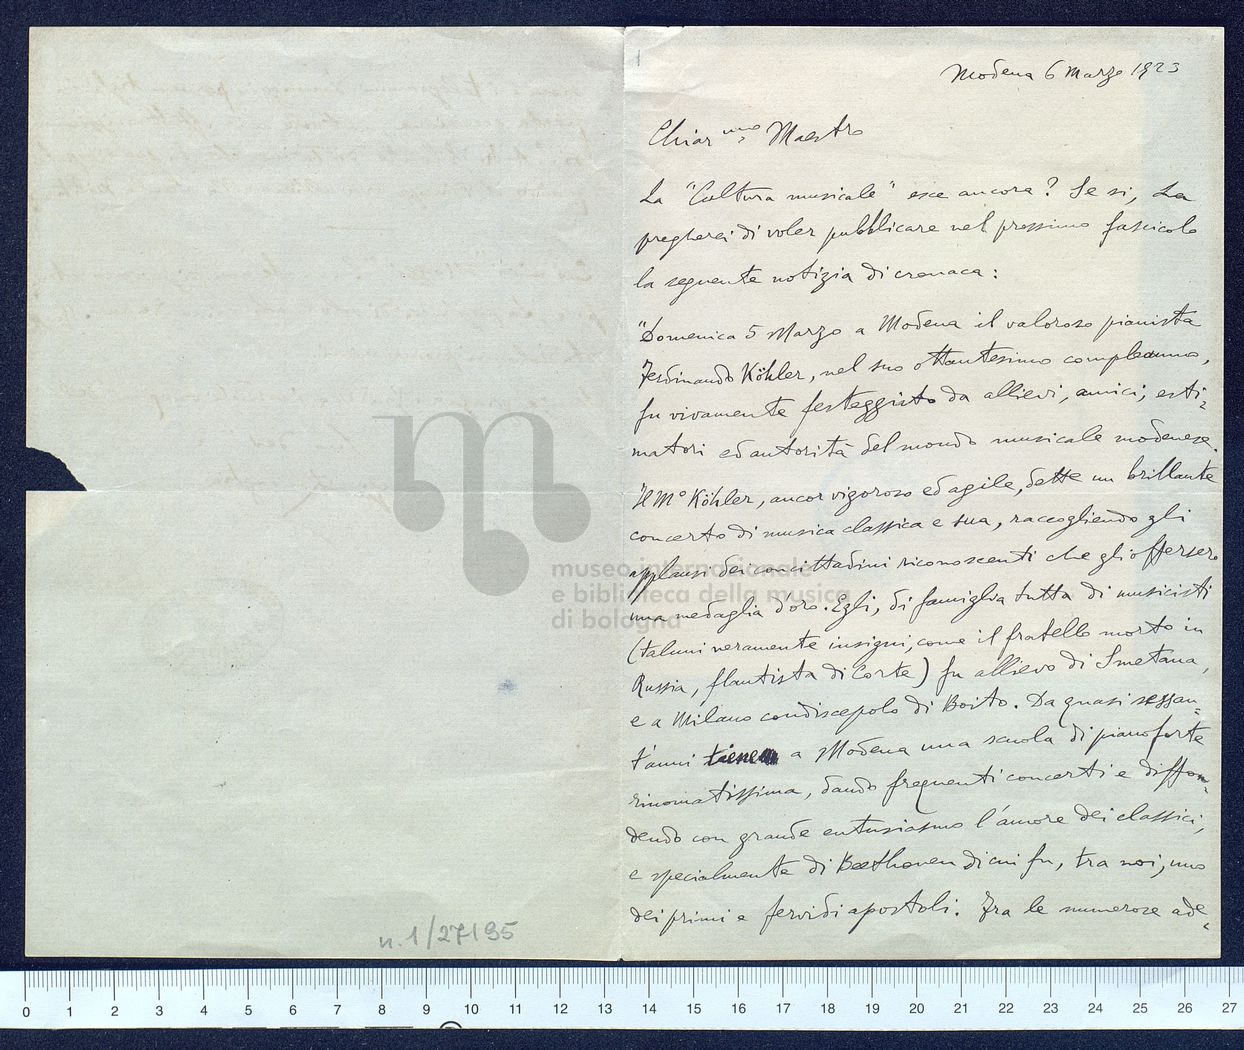 1
Modena 6 Marzo 1923
Chiar.mo Maestro
La "Cultura musicale" esce ancora? Se si, La
pregherei di voler pubblicare nel prossimo fascicolo
la seguente notizia di cronaca:
"Domenica 5 Marzo a Modena il valoroso pianista
Ferdinando Köhler, nel suo ottantesimo compleanno,
fu vivamente festeggiato da allievi, amici, esti-
matori ed autorità del mondo musicale modenese.
Il M° Köhler, ancor vigoroso ed agile, dette un brillante
concerto di musica classica e sua, raccogliendo gli
applausi dei concittadini riconoscenti che gli offersero
una medaglia d'oro. Egli, di famiglia tutta di musicisti
(taluni veramente insigni, come il fratello morto in
Russia, flautista di Corte) fu allievo di Smetana,
e a Milano condiscepolo di Boito. Da quasi sessan-
t'anni tiene a Modena una scuola di pianoforte
rinomatissima, dando frequenti concerti e diffon-
dendo con grande entusiasmo l'amore dei classici,
e specialmente di Beethoven di cui fu, tra noi, uno
dei primi e fervidi apostoli. Fra le numerose ade-
n. 1/27195
museo internazionale
e biblioteca della musica
di bologna
0 1 2 3 4 5 6 7 8 9 10 11 12 13 14 15 16 17 18 19 20 21 22 23 24 25 26 27